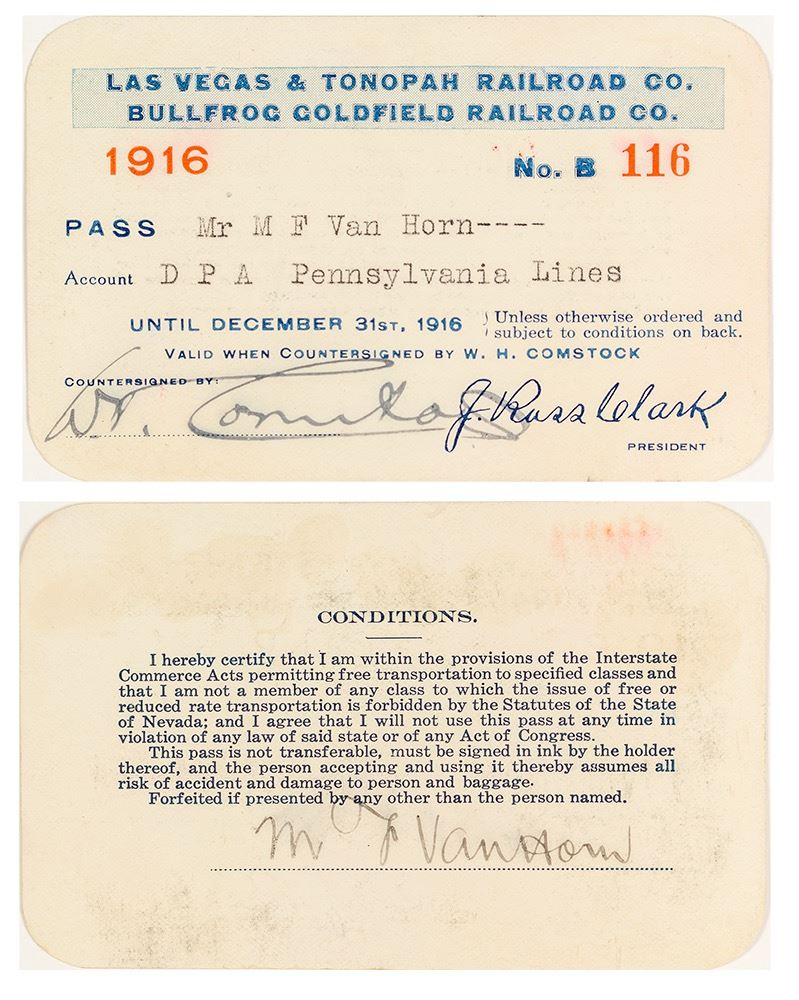 LAS VEGAS & TONOPAH RAILROAD CO.
BULLFROG GOLDFIELD RAILROAD CO.
1916 No. B 116
PASS Mr M F Van Horn----
Account D P A Pennsylvania Lines
UNTIL DECEMBER 31ST, 1916 Unless otherwise ordered and
subject to conditions on back.
VALID WHEN COUNTERSIGNED BY W. H. COMSTOCK
COUNTERSIGNED BY:
W. Comstock J. Ross Clark
PRESIDENT
CONDITIONS.
I hereby certify that I am within the provisions of the Interstate
Commerce Acts permitting free transportation to specified classes and
that I am not a member of any class to which the issue of free or
reduced rate transportation is forbidden by the Statutes of the State
of Nevada; and I agree that I will not use this pass at any time in
violation of any law of said state or of any Act of Congress.
This pass is not transferable, must be signed in ink by the holder
thereof, and the person accepting and using it thereby assumes all
risk of accident and damage to person and baggage.
Forfeited if presented by any other than the person named.
M F Van Horn